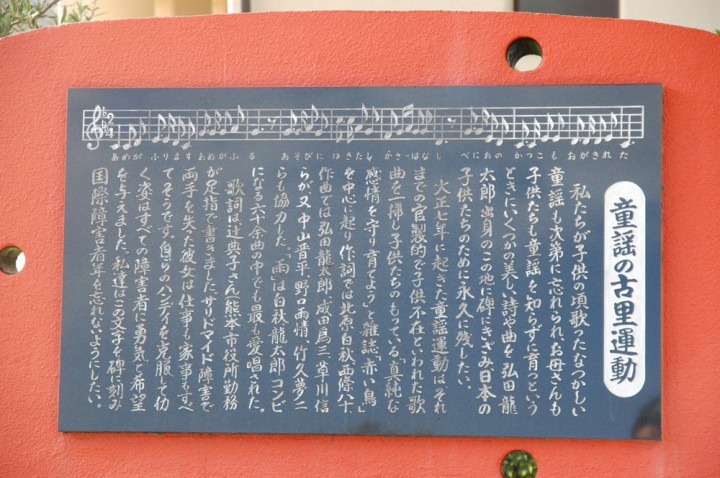 童謡の古里運動
あめが ふります あめがふる あそびに ゆきたし かさーはなし べにおの かっこも おがきれた
私たちが子供の頃歌ったなつかしい
童謡も次第に忘れられ、お母さんも
子供たちも童謡を知らずに育つという
ときにいくつかの美しい詩や曲を弘田龍
太郎出身のこの地に碑にきざみ日本の
子供たちのために永久に残したい。
大正七年に起きた童謡運動はそれ
までの官製的で子供不在といわれた歌
曲を一掃し子供たちのもっている「真純な
感情を守り育てよう」と雑誌「赤い鳥」
を中心に起り作詞では北原白秋、西條八十
作曲では弘田龍太郎、成田為三、草川信
らが又中山晋平、野口雨情、竹久夢二
らも協力した。「雨」は白秋、龍太郎コンビ
になる六十余曲の中でも最も愛唱された。
歌詞は辻典子さん(熊本市役所勤務)
が足指で書きました。サリドマイド障害で
両手を失った彼女は仕事も家事もすべ
てこなすそうです。自らのハンディを克服して仂
く姿はすべての障害者に勇気と希望
を与えました。私達はこの文字を碑に刻み
国際障害者年を忘れないようにしたい。